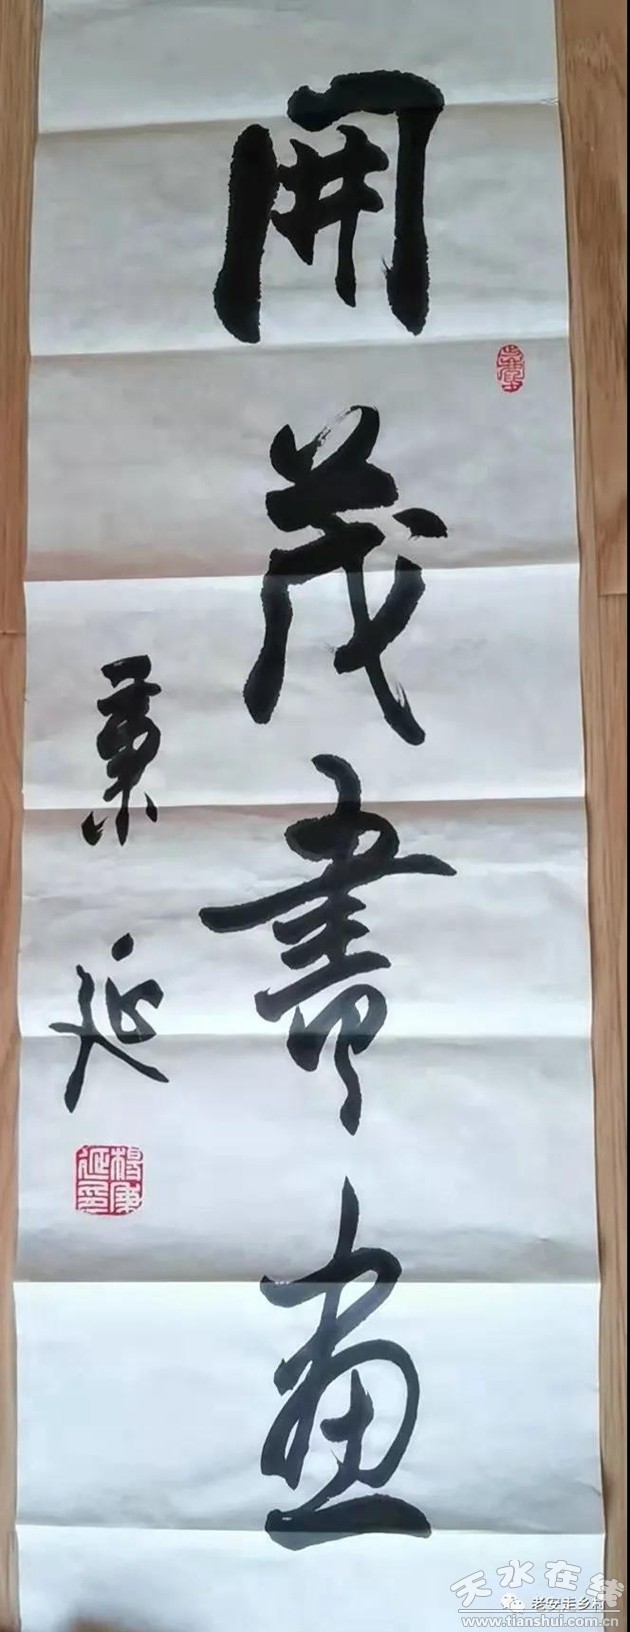 開茂書画
秉延
楊秉延印
天水在线
老安走乡村
www.tianshui.com.cn